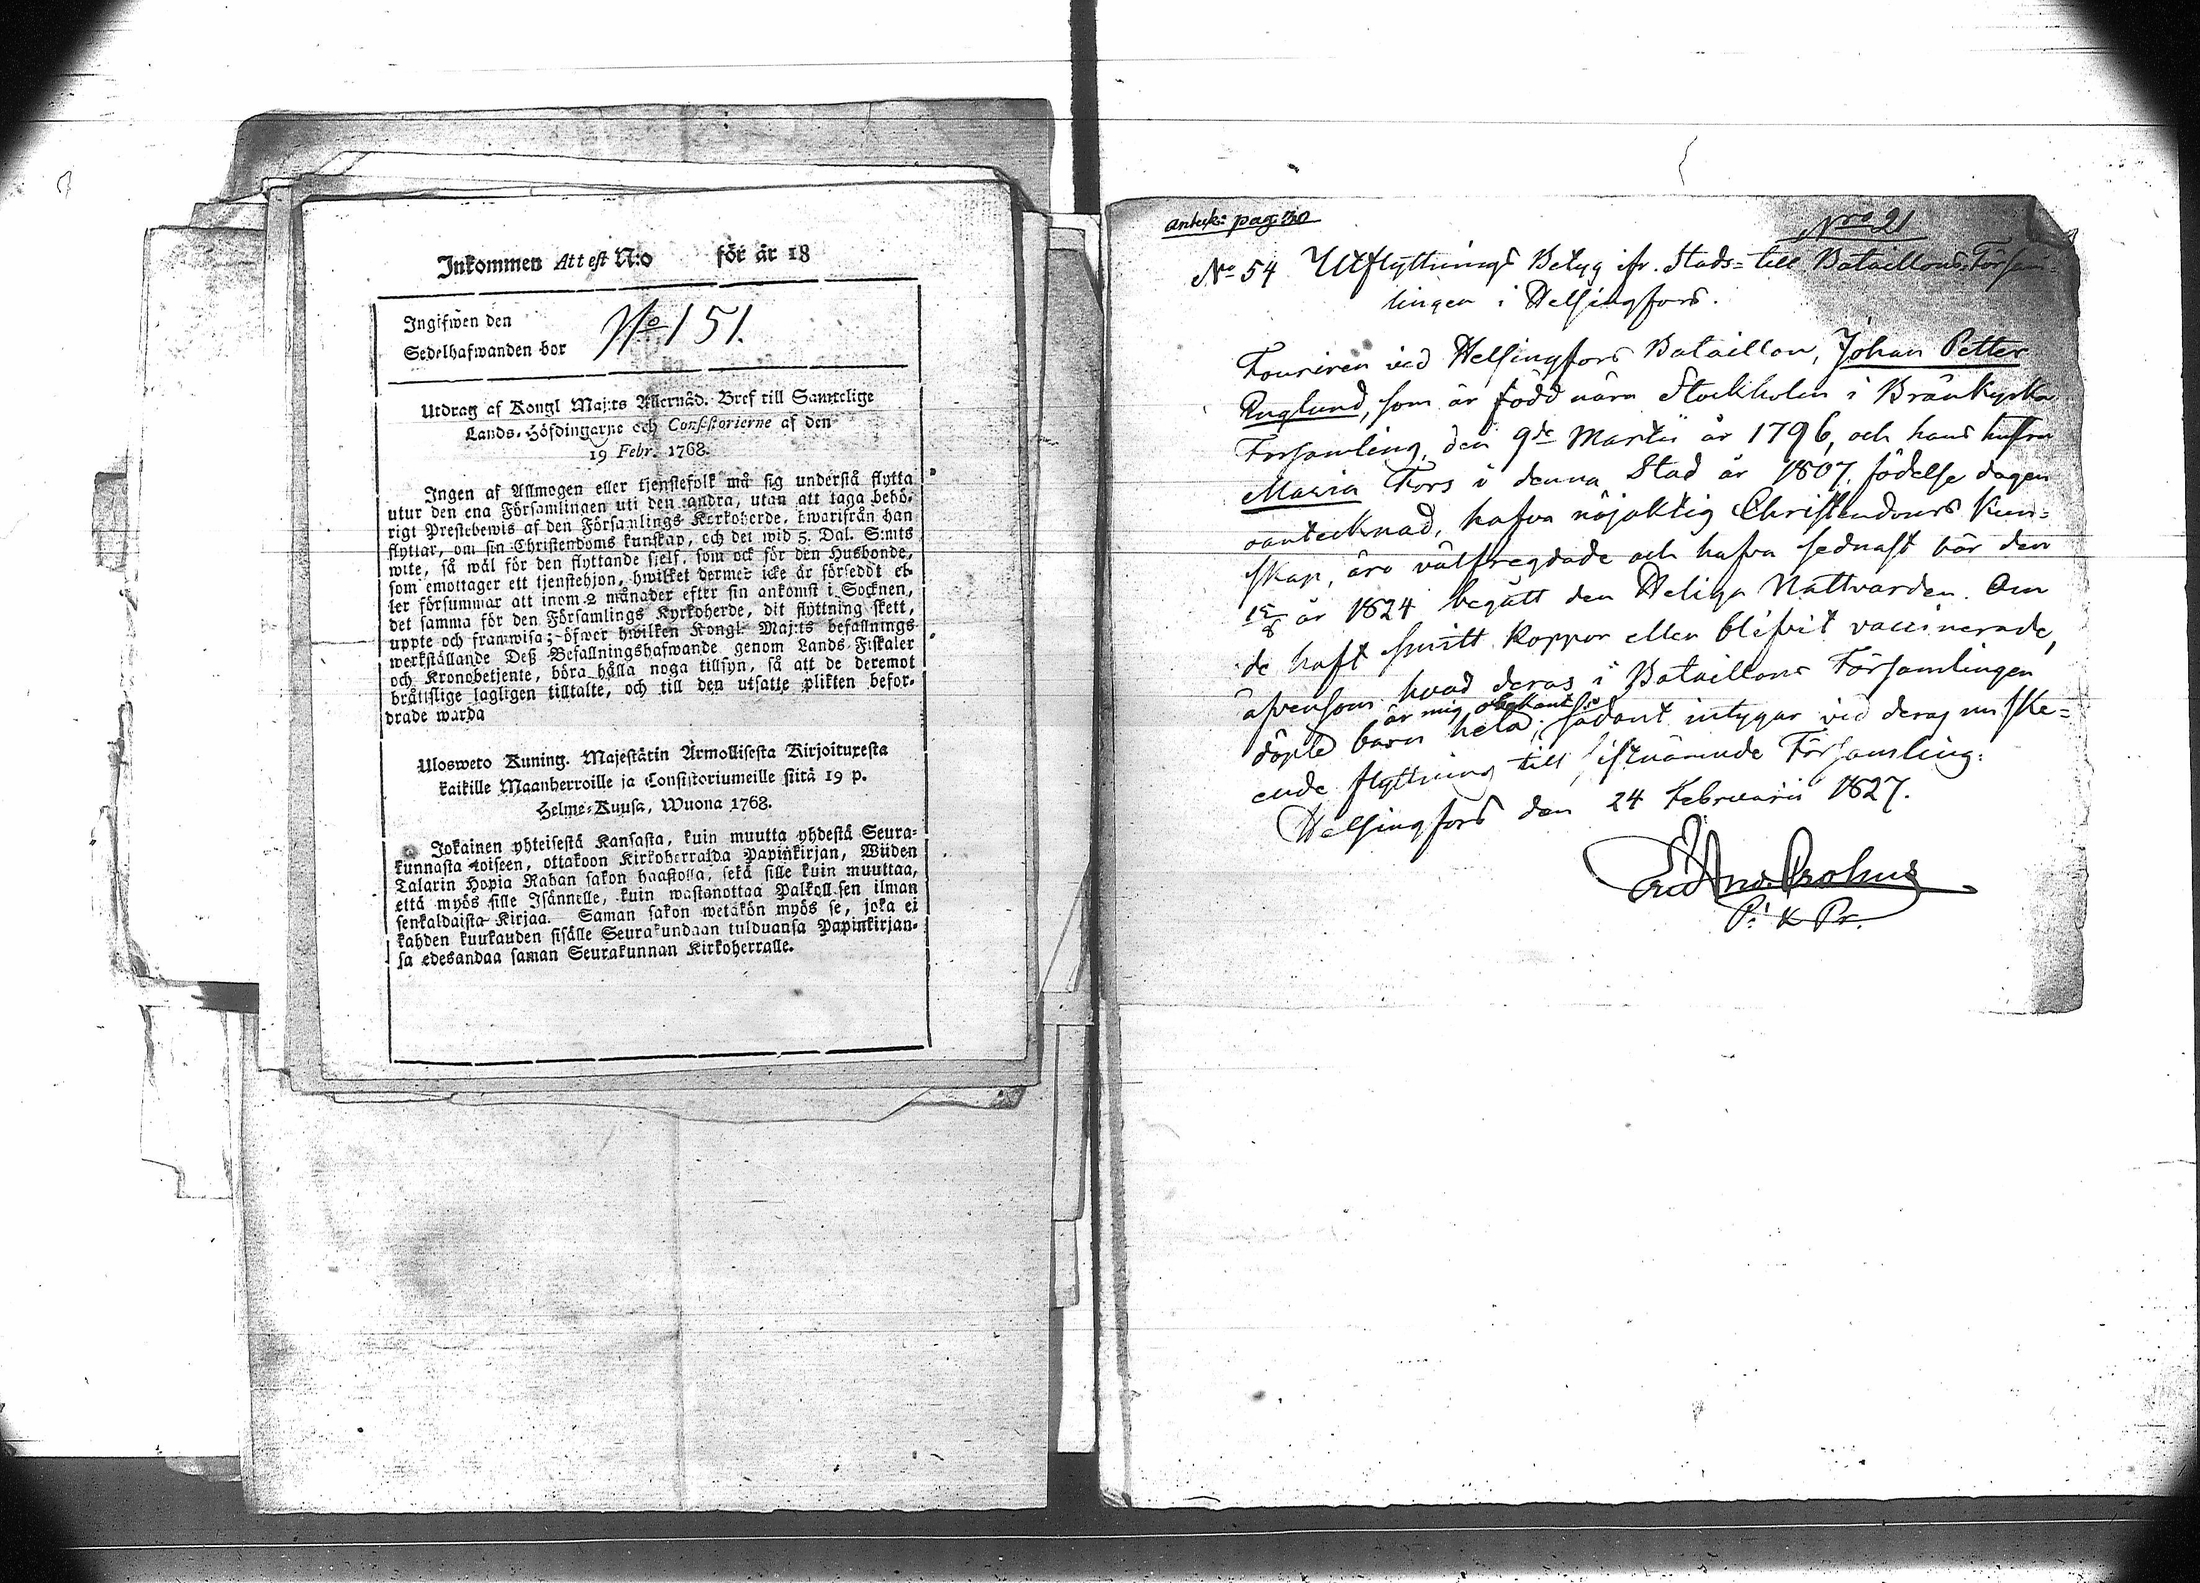 Inkommen Attest N:o för år 18
Ingifwen den
Sedelhafwanden bor
No 151.
Utdrag af Kongl Maj:ts Allernåd. Bref till Samtelige
Lands-Höfdingarne och Consistorierne af den
19 Febr. 1768.
Ingen af Allmogen eller tjenstefolk må sig understå flytta
utur den ena Församlingen uti den andra, utan att taga behö-
rigt Prestebewis af den Församlings Kyrkoherde, hwarifrån han
flyttar, om sin Christendoms kunskap, och det wid 5. Dal. S:mts
wite, så wäl för den flyttande sjelf, som ock för den Husbonde,
som emottager ett tjenstehjon, hwilket dermed icke är försedt el-
ler försummar att inom 2 månader efter sin ankomst i Socknen,
det samma för den Församlings Kyrkoherde, dit flyttning skett,
uppte och framwisa; öfwer hwilken Kongl. Maj:ts befallnings
werkställande Deß Befallningshafwande genom Lands Fiskaler
och Kronobetjente, böra hålla noga tillsyn, så att de deremot
bråtislige lagligen tilltalte, och till den utsatte plikten befor-
drade warda
Ulosweto Kuning. Majestätin Armollisesta Kirjoituxesta
kaikille Maanherroille ja Consistoriumeille siitä 19 p.
Helme-Kuusa, Wuona 1768.
Jokainen yhteisestä Kansasta, kuin muutta yhdestä Seura-
kunnasta toiseen, ottakoon Kirkoherralda Papinkirjan, Wiiden
Talarin Hopia Rahan sakon haastolla, sekä sille kuin muuttaa,
että myös sille Isännelle, kuin wastanottaa Palkollisen ilman
senkaldaista Kirjaa. Saman sakon wetäkön myös se, joka ei
kahden kuukauden sisälle Seurakundaan tulduansa Papinkirjan-
sa edesandaa saman Seurakunnan Kirkoherralle.
Anteck: pag: 30
Nro 21
No 54 Utflyttnings Betyg ifr. Stads- till Bataillons Försam-
lingen i Helsingfors.
Fouriren vid Helsingfors Bataillon, Johan Petter
Englund, som är född nära Stockholm i Bränkyrka
Församling, den 9de Martii år 1796, och hans hustru
Maria Fors i denna Stad år 1807, födelse dagen
oantecknad, hafva nöjaktig Christendoms Kun-
skap, äro välfregdade och hafva sednast här den
år 1824 begått den Heliga Nattvarden. Om
de haft smitt Koppor eller blifvit vaccinerade,
äfvensom hvad deras i Bataillons Församlingen
är mig obekant
döpte barn heta, sådant intygar vid deras nu ske-
ende flyttning till sistnämnde Församling.
Helsingfors den 24 Februarii 1827.